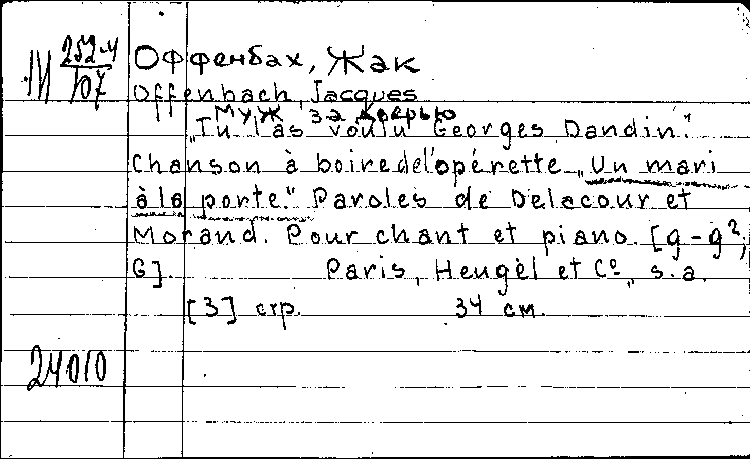 252-4
М 107
Оффенбах, Жак
Offenbach, Jacques
Муж за дверью
"Tu l'as voulu Georges Dandin."
Chanson à boire de l'opérette „Un mari
à la porte." Paroles de Delacour et
Morand. Pour chant et piano. [g-g²;
G]. Paris, Heugel et Cº, s.a.
[3] стр. 34 см.
24010